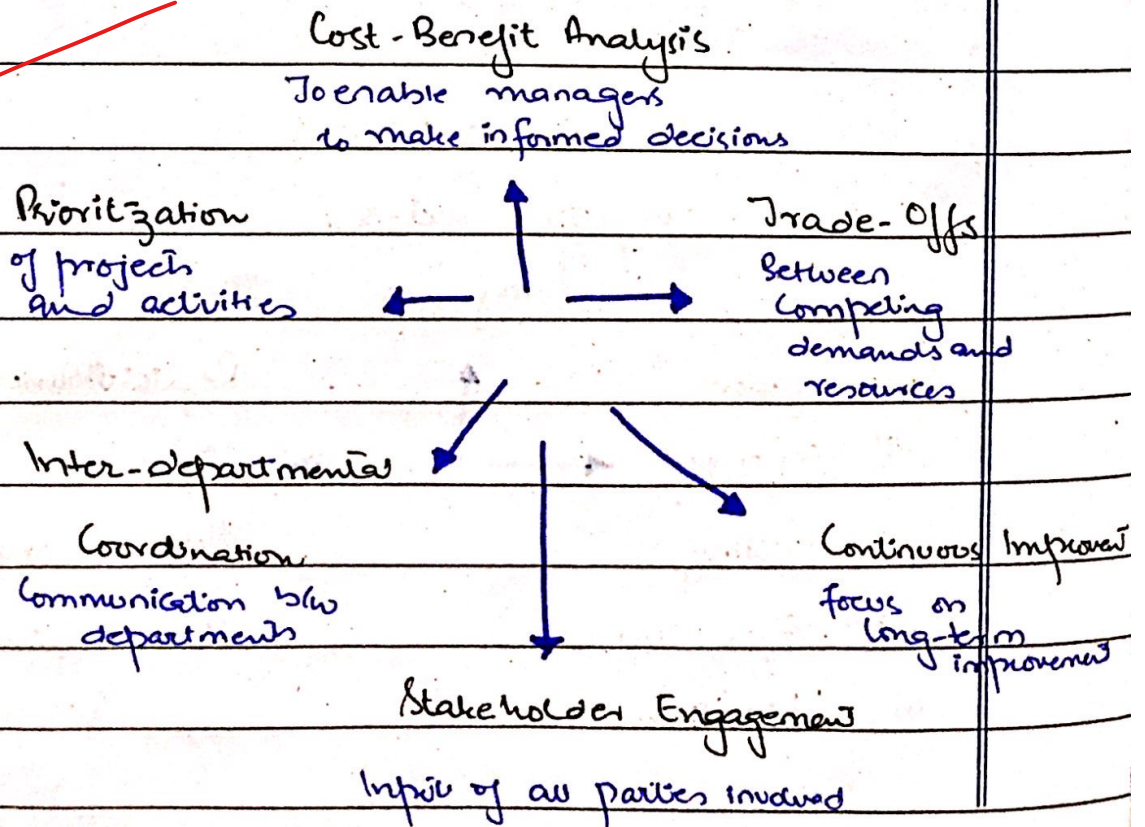 Cost-Benefit Analysis.
To enable managers
to make informed decisions
Prioritization
of projects
and activities
Trade-Offs
Between
Competing
demands and
resources
Inter-departmental
Coordination
Communication b/w
departments
Continuous Improvement
focus on
long-term
improvement
Stakeholder Engagement
Input of all parties involved